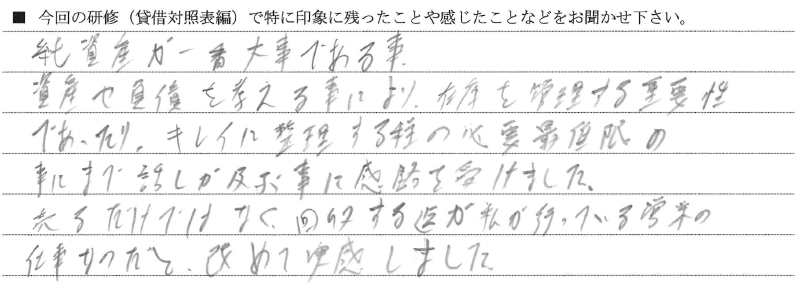 ■ 今回の研修（貸借対照表編）で特に印象に残ったことや感じたことなどをお聞かせ下さい。
純資産が一番大事である事。
資産や負債を考える事により、在庫を管理する重要性
であったり、キレイに整理する程の必要最低限の
事にまで話しが及ぶ事に感銘を受けました。
売るだけではなく、回収する迄が私が行っている営業の
仕事なのだと、改めて実感しました